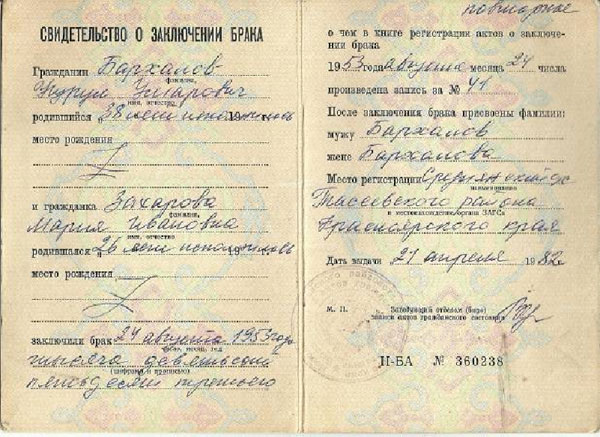 СВИДЕТЕЛЬСТВО О ЗАКЛЮЧЕНИИ БРАКА
Гражданин Бархалов
фамилия,
Умарович
имя, отчество
родившийся „38 лет исполнилось 19
место рождения
Z
и гражданка Захарова
фамилия,
Мария Ивановна
имя, отчество
родившаяся „26 лет исполнилось 19
место рождения
Z
заключили брак 24 августа 1953 года
число, месяц, год
тысяча девятьсот
(цифрами и прописью)
пятьдесят третьего
повторное
о чем в книге регистрации актов о заключе-
нии брака
1953 года августа месяца 24 числа
произведена запись за № 41
После заключения брака присвоены фамилии:
мужу Бархалов
жене Бархалова
Место регистрации
наименование
Тасеевского района
и местонахождение органа ЗАГСа
Красноярского края
Дата выдачи 21 апреля 1982 г.
М. П.
Заведующий отделом (бюро)
записи актов гражданского состояния
II-БА № 360238